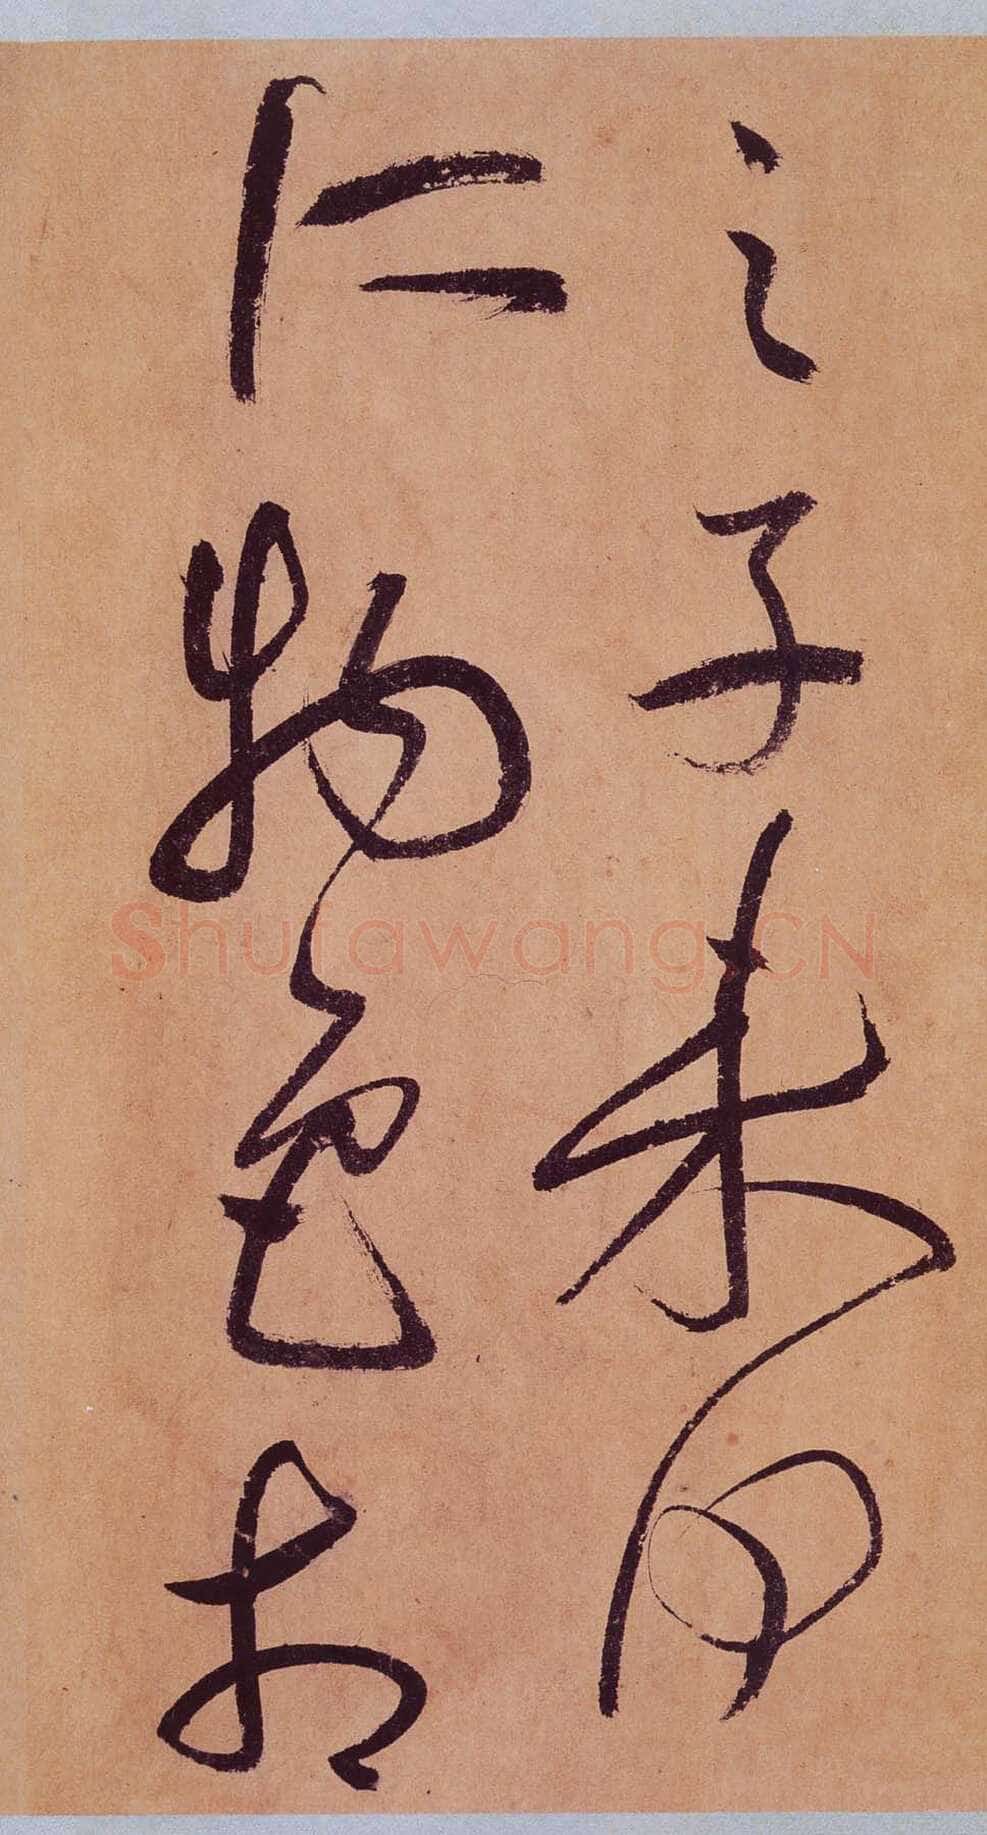 之子未同
仁物色相
Shufawang.CN